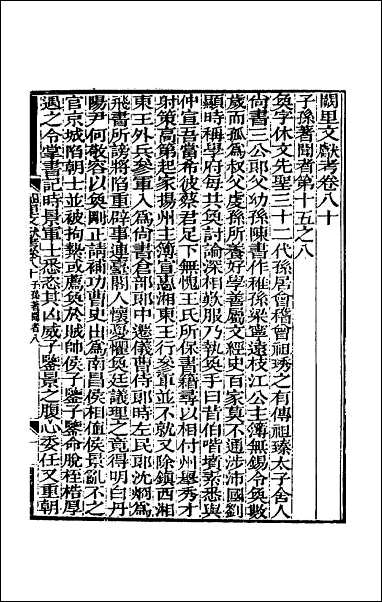 闕里文獻考卷八十
子孫著聞者第十五之八
奐字休文先聖三十二代孫居會稽曾祖琇之有傳祖臻太子舍人
尚書三公郎父幼孫陳書作稚孫梁寧遠枝江公主簿無錫令奐數
歲而孤爲叔父虔孫所養好學善屬文經史百家莫不通涉沛國劉
顯時稱學府每共奐討論深相歎服乃執奐手曰昔伯喈墳素悉與
仲宣吾當希彼蔡君足下無愧王氏所保書籍尋以相付州舉秀才
射策高第起家揚州主簿宣惠湘東王行參軍並不就又除鎮西湘
東王外兵參軍入爲尚書倉部郎中遷儀曹侍郎時左民郎沈炯爲
飛書所謗將陷重辟事連臺閣人懷憂懼奐廷議理之竟得明白丹
陽尹何敬容以奐剛正請補功曹史出爲南昌侯相值侯景亂不之
官京城陷朝士並被拘縶或薦奐於賊帥侯子鑒子鑒命脫桎梏厚
遇之令掌書記時景軍士悉恣其凶威子鑒景之腹心委任又重朝
闕里文獻考卷八十 子孫著聞者八 一